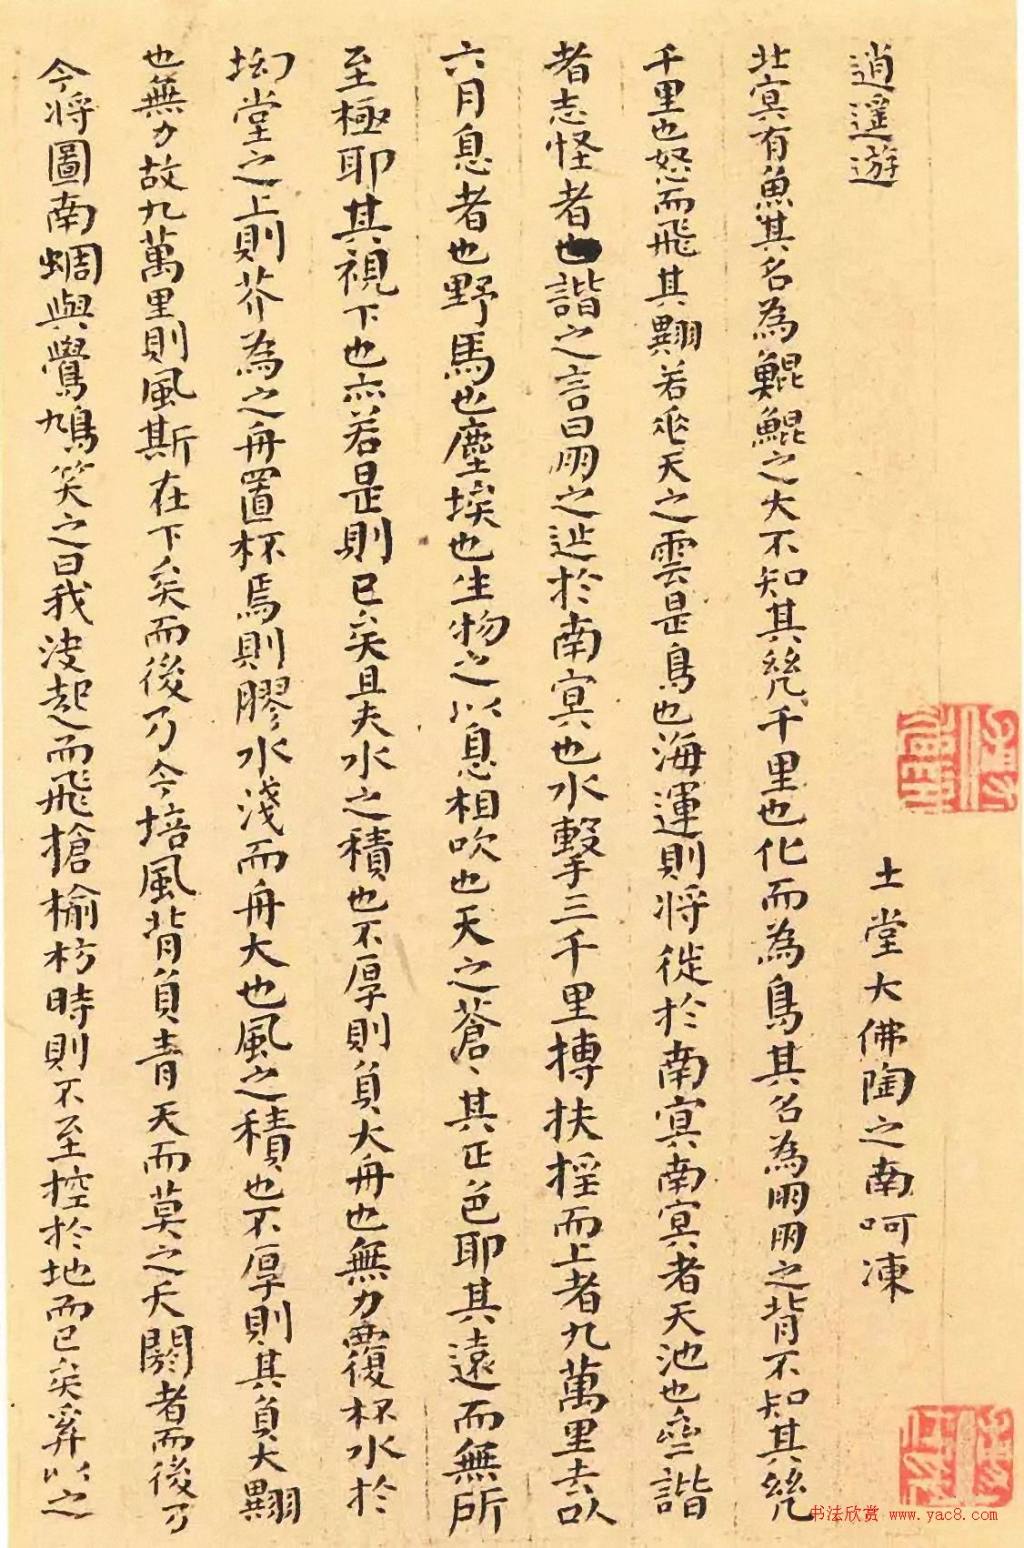 逍遥遊
土堂大佛陶之南呵凍
北㝠有魚其名為鯤鯤之大不知其幾千里也化而為鳥其名為朋朋之背不知其幾
千里也怒而飛其翾若垂天之雲是鳥也海運則将徙於南㝠南㝠者天池也齊諧
者志怪者也諧之言曰朋之逰於南㝠也水擊三千里摶扶揺而上者九萬里去以
六月息者也野馬也塵埃也生物之以息相吹也天之蒼〻其正色耶其遠而無所
至極耶其視下也亦若是則已矣且夫水之積也不厚則負大舟也無力覆杯水於
坳堂之上則芥為之舟置杯焉則膠水淺而舟大也風之積也不厚則其負大翾
也無力故九萬里則風斯在下矣而後乃今培風背負青天而莫之夭閼者而後乃
今将圖南蜩與鷽鳩笑之曰我决起而飛搶榆枋時則不至控於地而已矣奚以之
书法欣赏 www.yac8.com